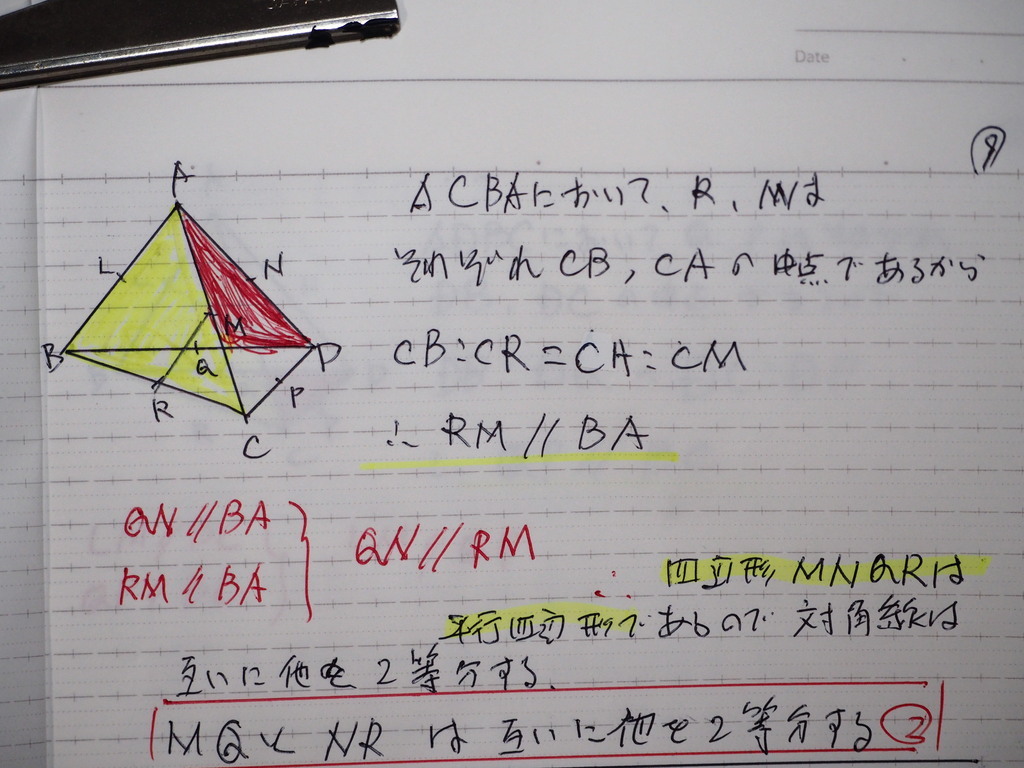 Date
9
△CBAにおいて、R、Mは
それぞれCB,CAの中点であるから
A
L
N
B
M
Q
D
R
P
C
CB:CR=CA:CM
∴ RM//BA
QN//BA
RM//BA
QN//RM
∴ 四辺形MNQRは
平行四辺形であるので対角線は
互いに他を2等分する、
MQとNRは互いに他を2等分する②